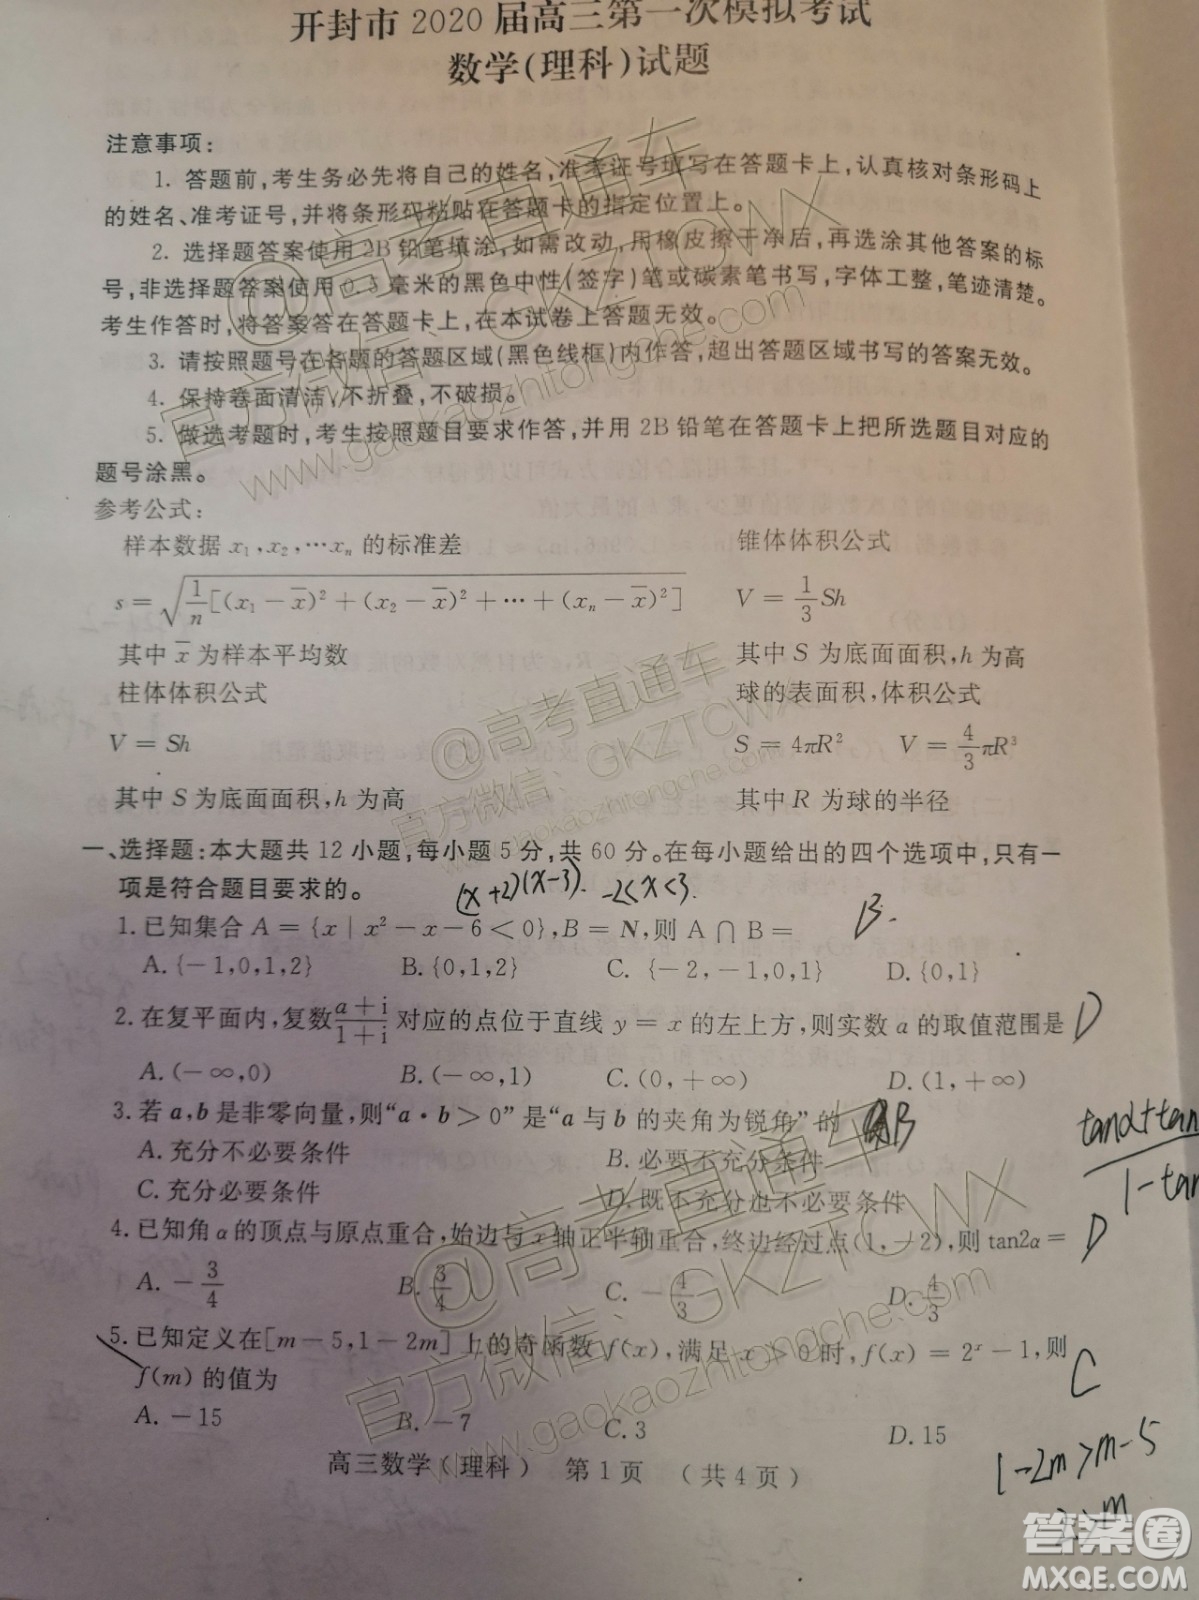 开封市 2020 届高三第一次模拟考试
数学(理科)试题
注意事项:
1. 答题前,考生务必先将自己的姓名,准考证号填写在答题卡上,认真核对条形码上
的姓名、准考证号,并将条形码粘贴在答题卡的指定位置上。
2. 选择题答案使用 2B 铅笔填涂,如需改动,用橡皮擦干净后,再选涂其他答案的标
号,非选择题答案使用 0.5 毫米的黑色中性(签字)笔或碳素笔书写,字体工整,笔迹清楚。
考生作答时,将答案答在答题卡上,在本试卷上答题无效。
3. 请按照题号在各题的答题区域(黑色线框)内作答,超出答题区域书写的答案无效。
4. 保持卷面清洁,不折叠,不破损。
5. 做选考题时,考生按照题目要求作答,并用 2B 铅笔在答题卡上把所选题目对应的
题号涂黑。
参考公式:
样本数据 x₁,x₂,…xₙ 的标准差 锥体体积公式
s=√(1/n[(x₁-x̄)²+(x₂-x̄)²+…+(xₙ-x̄)²]) V=1/3Sh
其中 x̄ 为样本平均数 其中 S 为底面面积,h 为高
柱体体积公式 球的表面积,体积公式
V=Sh S=4πR² V=4/3πR³
其中 S 为底面面积,h 为高 其中 R 为球的半径
一、选择题:本大题共 12 小题,每小题 5 分,共 60 分。在每小题给出的四个选项中,只有一
项是符合题目要求的。 (x+2)(x-3). -2<x<3.
1. 已知集合 A={x|x²-x-6<0},B=N,则 A∩B= B.
A. {-1,0,1,2} B. {0,1,2} C. {-2,-1,0,1} D. {0,1}
2. 在复平面内,复数(a+i)/(1+i)对应的点位于直线 y=x 的左上方,则实数 a 的取值范围是 D
A. (-∞,0) B. (-∞,1) C. (0,+∞) D. (1,+∞)
3. 若 a,b 是非零向量,则“a·b>0”是“a 与 b 的夹角为锐角”的 B
A. 充分不必要条件 B. 必要不充分条件
C. 充分必要条件 D. 既不充分也不必要条件
tanα+tan
1-tan
4. 已知角 α 的顶点与原点重合,始边与 x 轴正半轴重合,终边经过点(1,-2),则 tan2α= D
A. -3/4 B. 3/4 C. -4/3 D. 4/3
5. 已知定义在[m-5,1-2m]上的奇函数 f(x),满足 x>0 时,f(x)=2ˣ-1,则
f(m) 的值为 C
A. -15 B. -7 C. 3 D. 15
1-2m>m-5
高三数学(理科) 第 1 页 (共 4 页)
@高考直通车
官方微信:GKZTCWX
www.gaokaozhitongche.com
@高考直通车
官方微信:GKZTCWX
www.gaokaozhitongche.com
@高考直通车
官方微信:GKZTCWX
www.gaokaozhitongche.com
答案圈
MXQE.COM